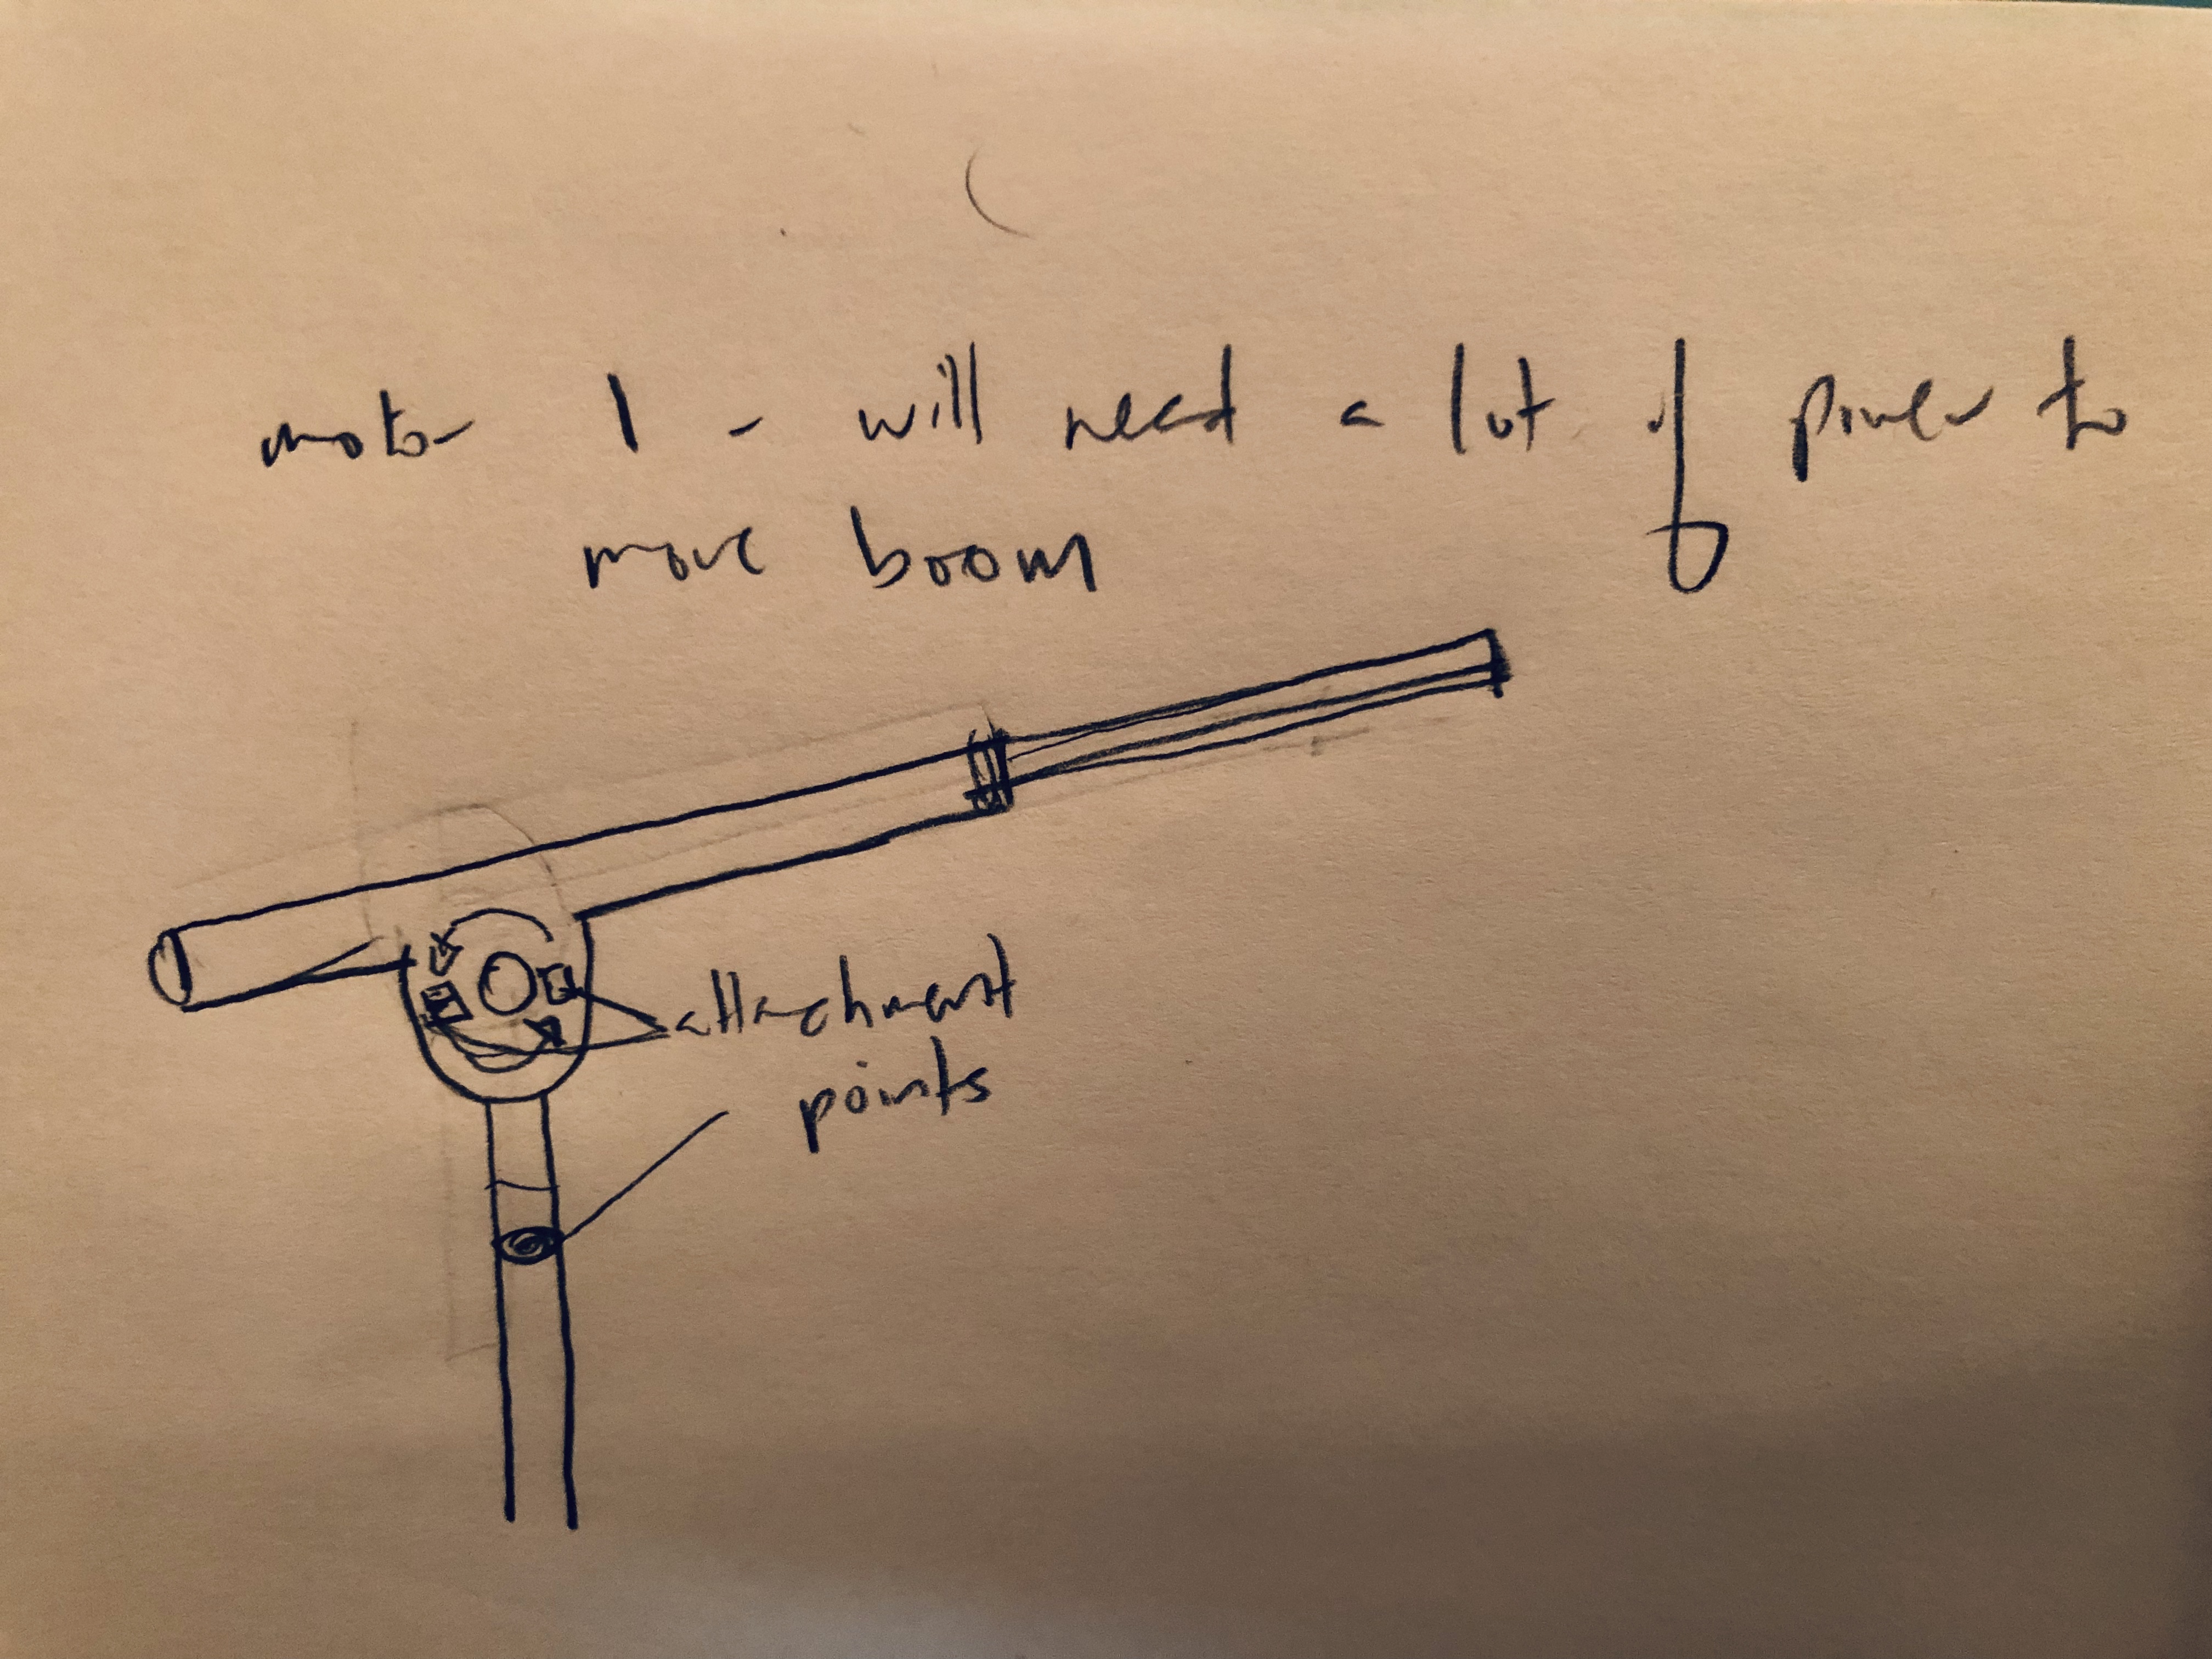 motor 1 - will need a lot of power to
move boom
attachment
points